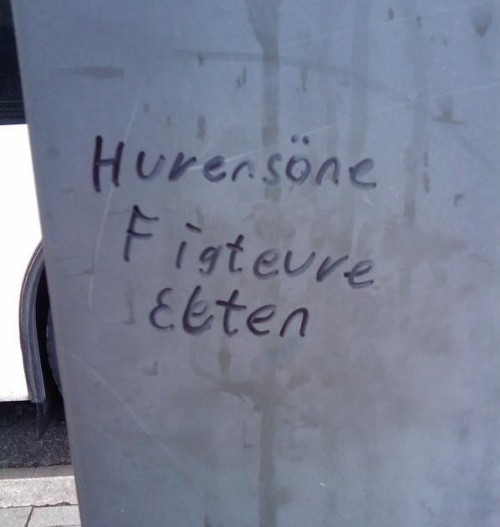 Hurensöne
Figteure
Ekten